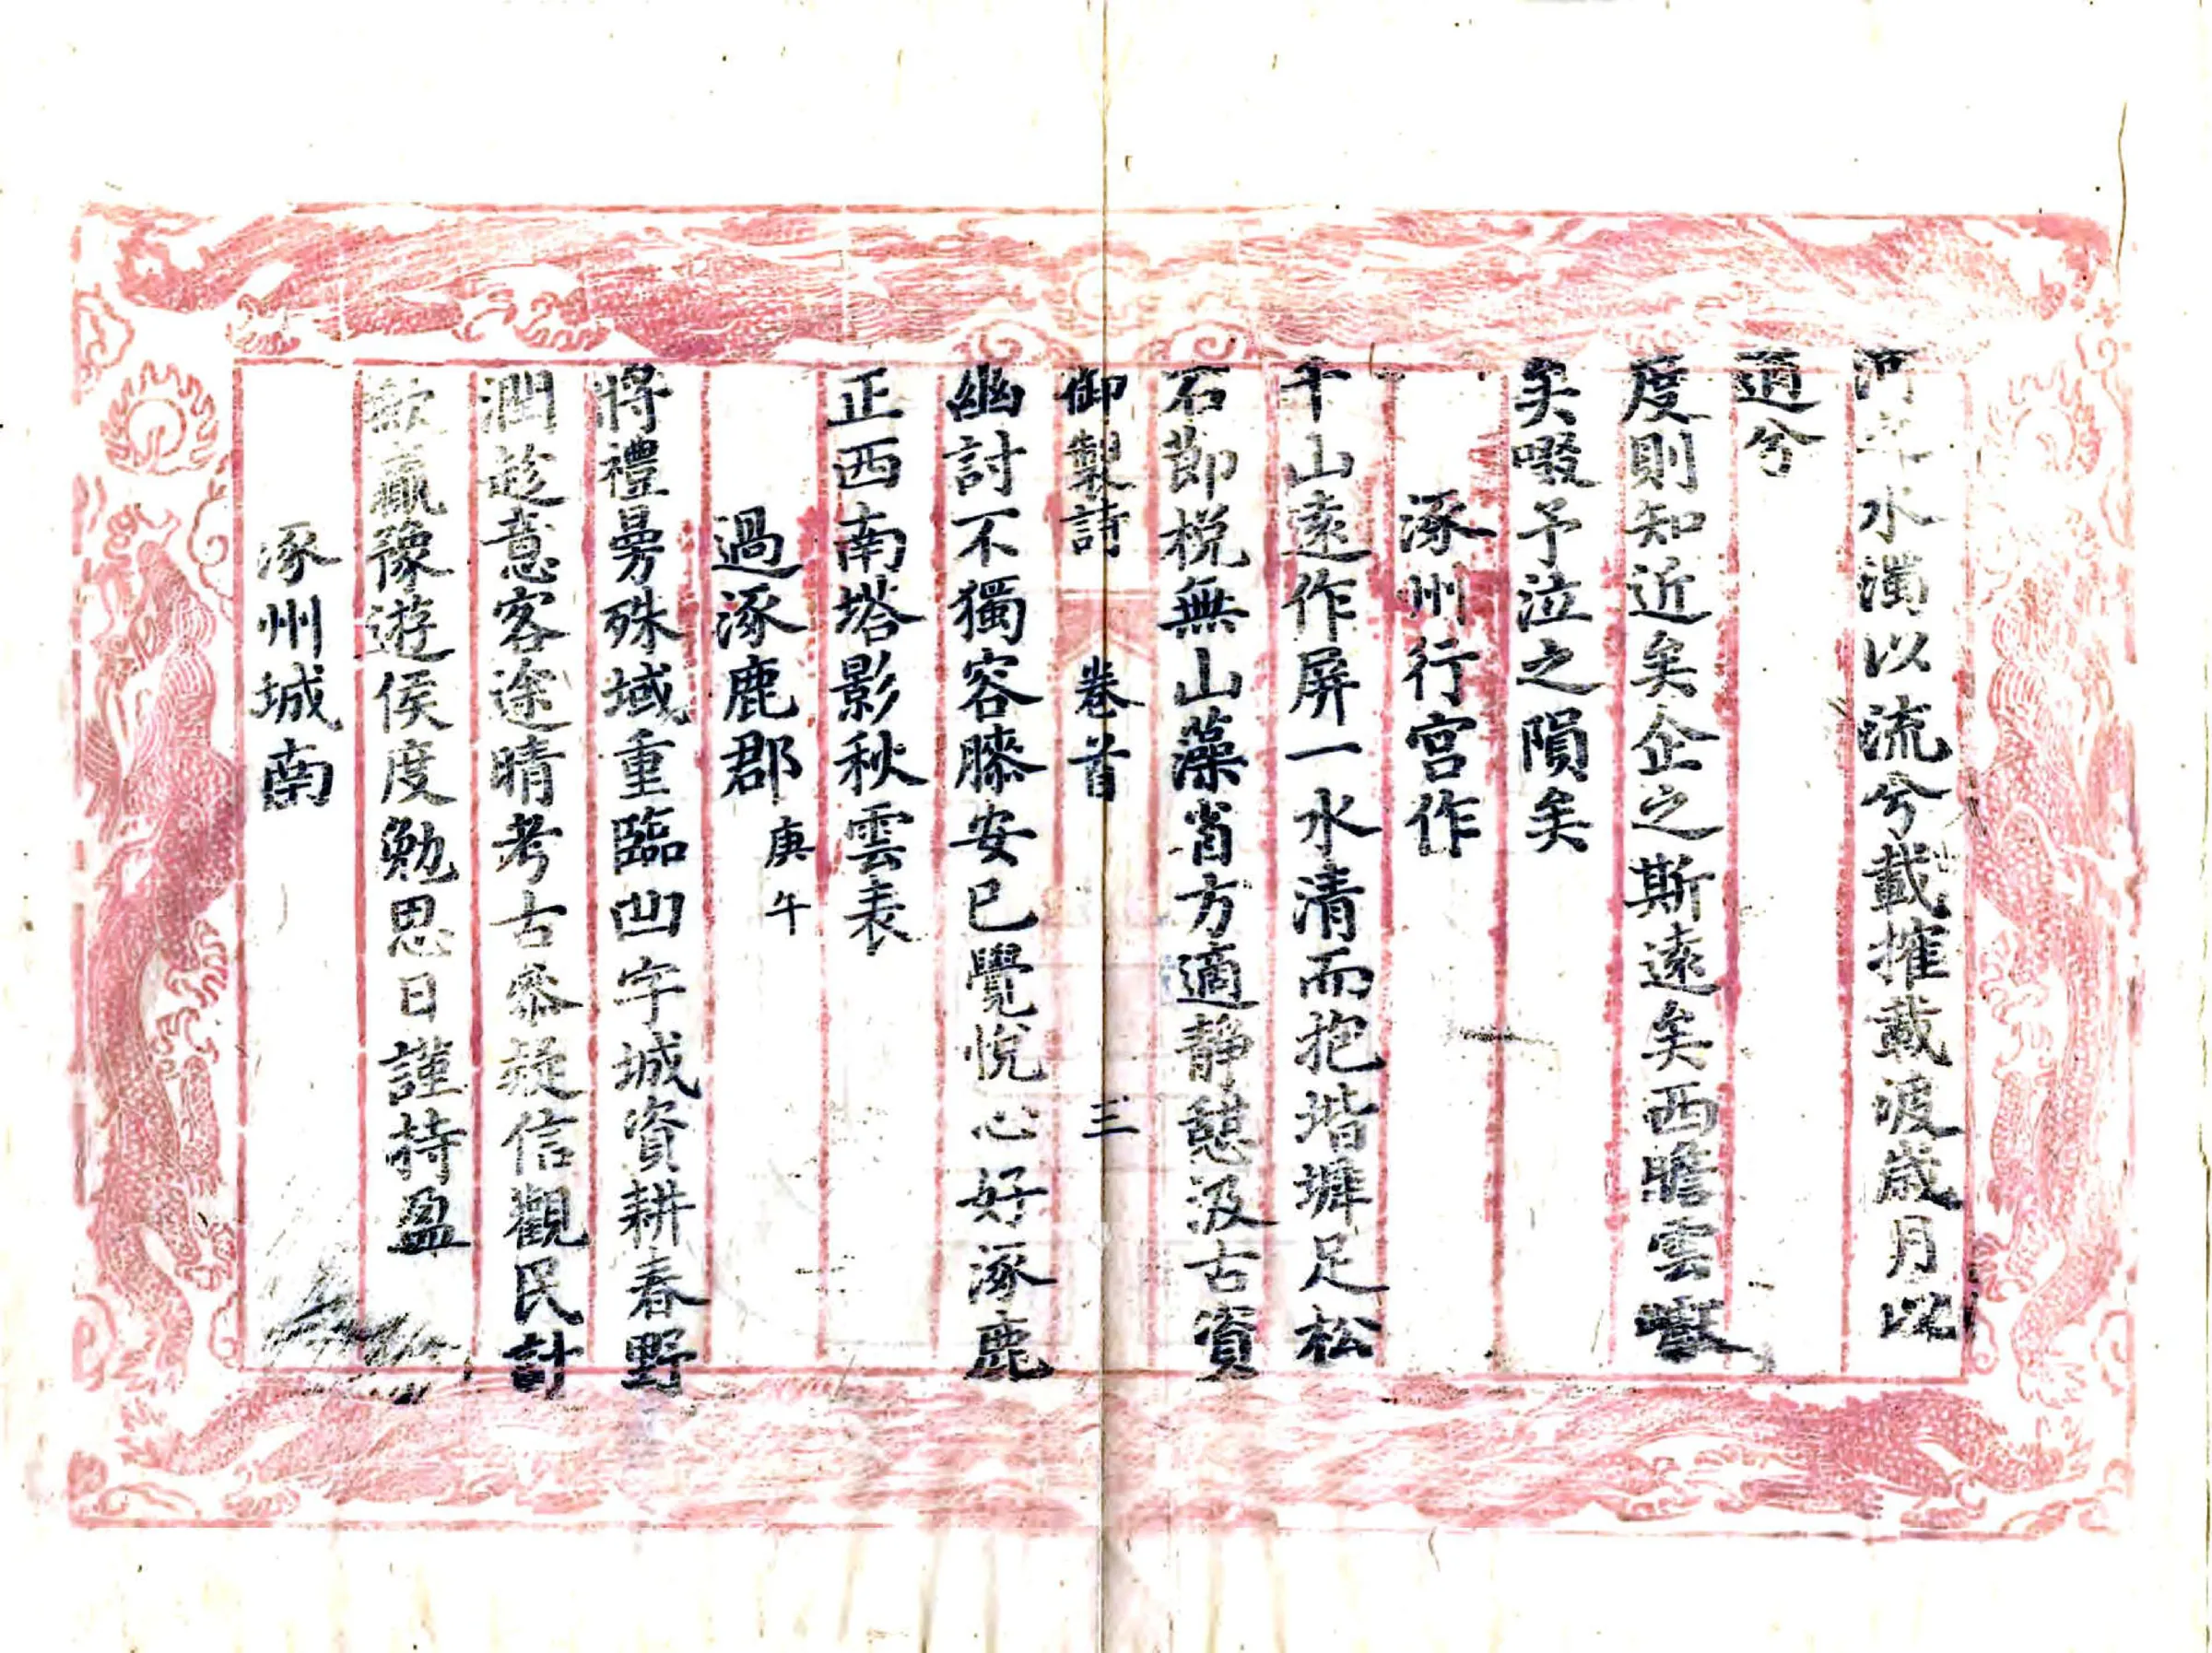 河之水濁以流兮載摧載浚歲月以
逌兮
度則知近矣企之斯遠矣西瞻雲
矣啜予泣之隕矣
涿州行宮作
千山遠作屏一水清而抱堦墀足松
石節棁無山藻省方適靜憩汲古資
御製詩 卷首 三
幽討不獨容膝安已覺悅心好涿鹿
正西南塔影秋雲表
過涿鹿郡 庚午
將禮曼殊域重臨凹字城資耕春野
潤趁意客途晴考古參疑信觀民計
歉贏豫遊侯度勉思日謹持盈
涿州城南